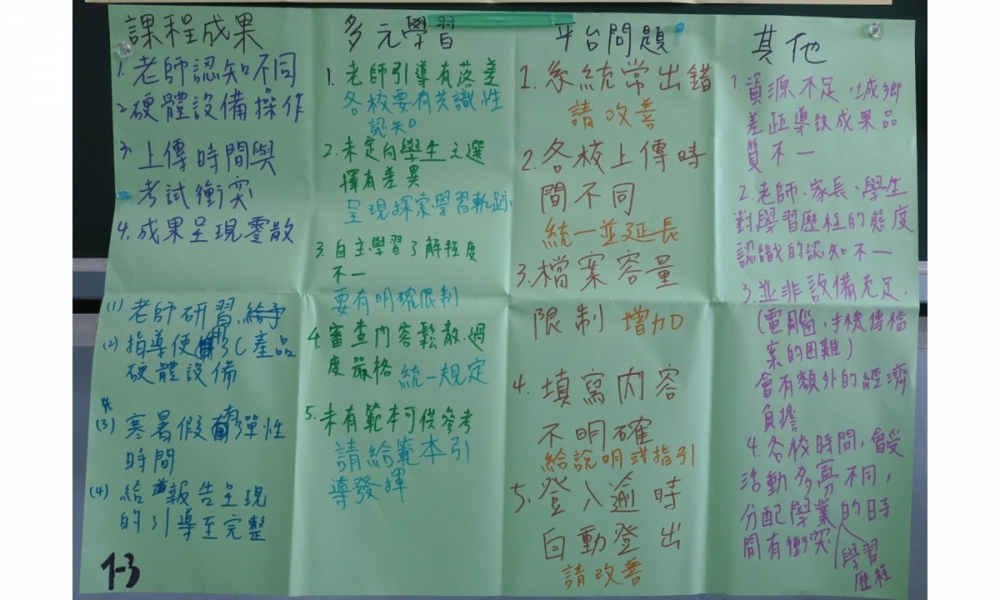 課程成果
1. 老師認知不同
2. 硬體設備操作
3. 上傳時間與
考試衝突
4. 成果呈現零散
(1) 老師研習給予
(2) 指導使用3C產品
硬體設備
(3) 寒暑假有彈性
時間
(4) 給報告呈現
的引導至完整
1-3
多元學習
1. 老師引導有落差
各校要有共識性
認知
2. 未定向學生之選
擇有差異
呈現探索學習軌跡
3. 自主學習了解程度
不一
要有明確限制
4. 審查內容鬆散、過
度嚴格 統一規定
5. 未有範本可供參考
請給範本引
導發揮
平台問題
1. 系統常出錯
請改善
2. 各校上傳時
間不同
統一並延長
3. 檔案容量
限制 增加
4. 填寫內容
不明確
給說明或指引
5. 登入逾時
自動登出
請改善
其他
1. 資源不足,城鄉
差距導致成果品
質不一
2. 老師、家長、學生
對學習歷程的態度
認識的認知不一
3. 並非設備充足,
(電腦,手機傳檔
案的困難)
會有額外的經濟
負擔
4. 各校時間,會受
活動多寡不同,
分配學業的時
間有衝突
學習
歷程